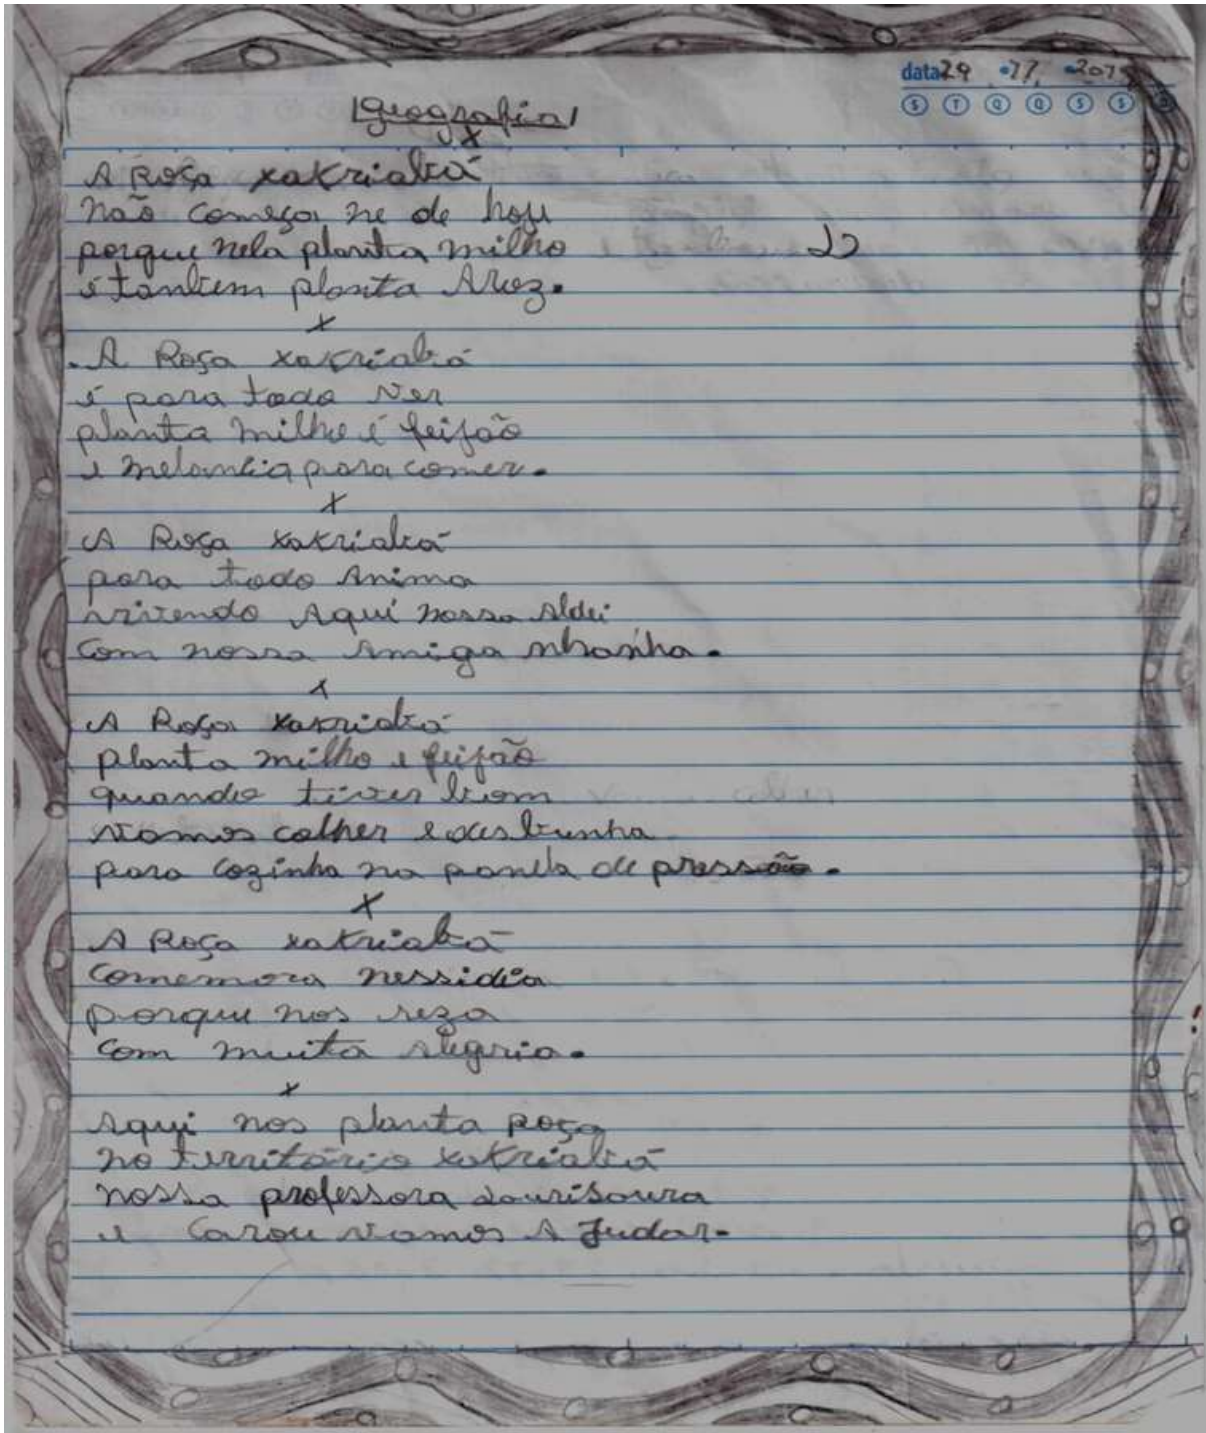 data 29 • 11 • 201
S T Q Q S S D
geografia
x
A Roça xakriabá
não começa ne de hoje
porque nela planta milho
é tanbem planta Aroz.
x
A Roça xakriabá
é para todo ver
planta milho é feijão
e melancia para comer.
x
A Roça xakriabá
para todo Anima
vivendo Aqui nossa Aldei
com nossa Amiga nhanha.
x
A Roça xakriabá
planta milho e feijão
quando tiver bom
vamos colher e desbunha
para cozinha na panela de pressão.
x
A Roça xakriabá
comemora nessidia
porque nos reza
com muita Alegria.
x
Aqui nos planta Roça
no território xakriabá
nossa professora
e vamos A Judar.